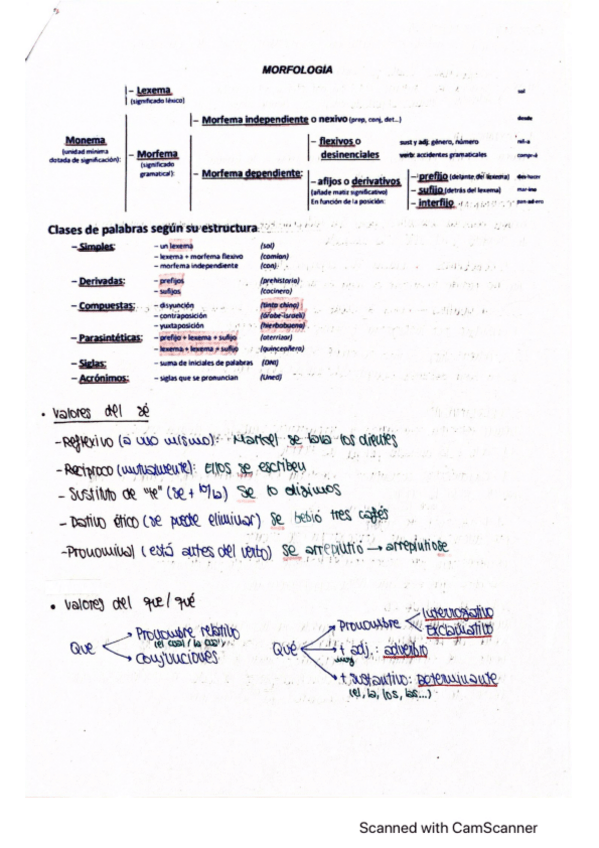 MORFOLOGÍA
– Lexema
(significado léxico)
– Morfema independiente o nexivo (prep, conj, det...) desde
Monema
(unidad mínima
dotada de significación):
– Morfema
(significado
gramatical):
– flexivos o
desinenciales
sust y adj: género, número
verb: accidentes gramaticales
– Morfema dependiente:
– afijos o derivativos
(añade matiz significativo)
En función de la posición:
– prefijo (delante del lexema)
– sufijo (detrás del lexema)
– interfijo
Clases de palabras según su estructura
– Simples: – un lexema (sol)
– lexema + morfema flexivo (camion)
– morfema independiente (con)
– Derivadas: – prefijos (prehistoria)
– sufijos (cocinero)
– Compuestas: – disyunción (tinto chino)
– contraposición (árabe-israelí)
– yuxtaposición (hierbabuena)
– Parasintéticas: – prefijo + lexema + sufijo (aterrizar)
– lexema + lexema + sufijo (quinceañera)
– Siglas: – suma de iniciales de palabras (DNI)
– Acrónimos: – siglas que se pronuncian (Uned)
• Valores del sé
– Reflexivo (a uno mismo): Marisel se lava los dientes
– Recíproco (mutuamente): Ellos se escriben
– Sustituto de "le" (se + lo/la) Se lo dijimos
– Dativo ético (se puede eliminar) Se bebió tres cafés
– Pronominal (está antes del verbo) Se arrepintió → arrepintiose
• Valores del que/qué
Que Pronombre relativo
(el cual / la cual)
Conjunciones
Qué Pronombre Interrogativo
Exclamativo
+ adj.: adverbio
muy
+ sustantivo: Determinante
(el, la, los, las...)
Scanned with CamScanner